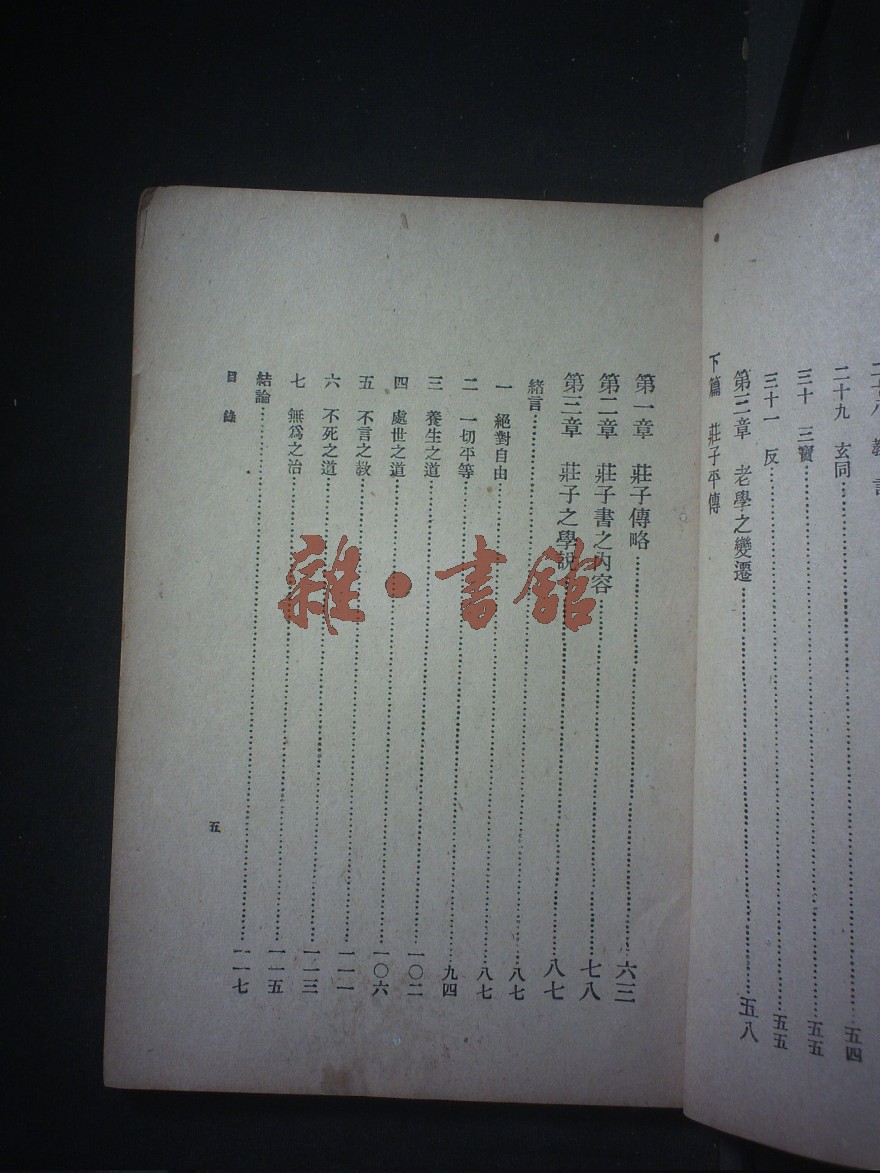 二十九 玄同 五四
三十 三寶 五五
三十一 反 五五
第三章 老學之變遷 五八
下篇 莊子平傳
第一章 莊子傳略 六三
第二章 莊子書之內容 七八
第三章 莊子之學說 八七
緒言 八七
一 絕對自由 八七
二 一切平等 九四
三 養生之道 一〇二
四 處世之道 一〇六
五 不言之教 一一一
六 不死之道 一一三
七 無爲之治 一一五
結論 一一七
目錄
五
雜·書館